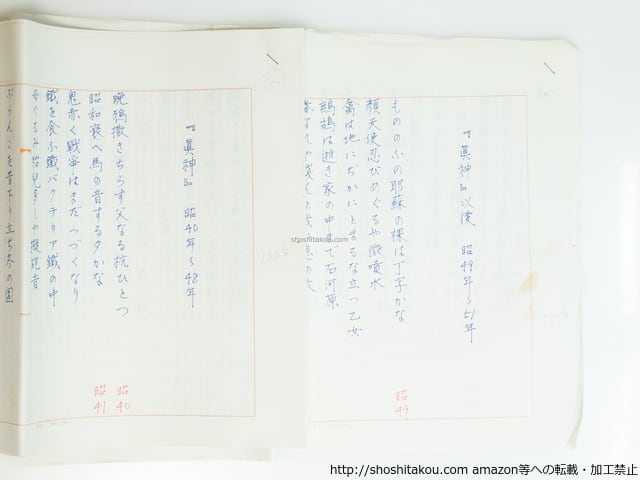 『眞神』以後 昭49年〜51年
もののふの耶蘇の裸は丁字かな
顔天使忍びめぐるや微噴水
禽は地にぢかにとまるな立つ乙女
鶺鴒は逝き家の中まで石河原
昭49
『眞神』 昭40年〜48年
晩鴉撒きちらす父なる杭ひとつ
昭和衰へ馬の音する夕かな
鬼赤く戦争はまだつづくなり
鐵を食ふ鐵バクテリア鐵の中
母ぐるみ胎児多しや擬砲音
ぶらんこを昔下り立ち冬の園
昭40
昭41
shoshitakou.com
http://shoshitakou.com amazon等への転載・加工禁止